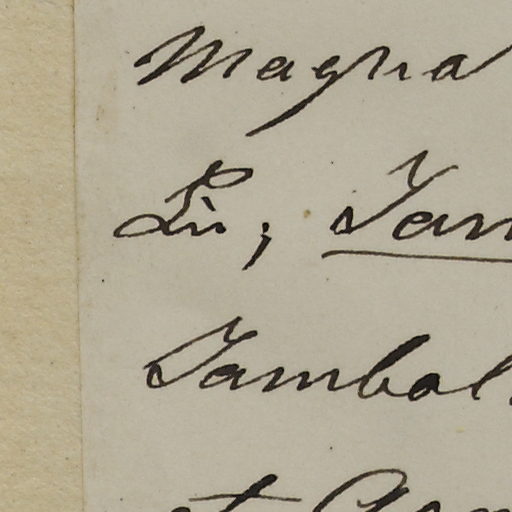 Magna
Lin; Jam
Jambol
et